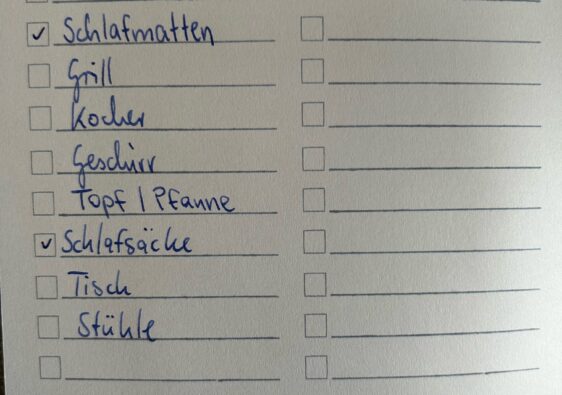 Schlafmatten
Grill
Kocher
Geschirr
Topf / Pfanne
Schlafsäcke
Tisch
Stühle